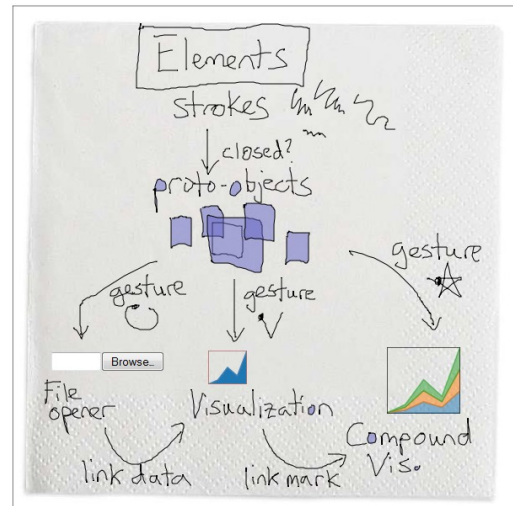 Elements
strokes
closed?
proto-objects
gesture
gesture
gesture
Browse..
File
opener
Visualization
Compound
Vis.
link data
link mark